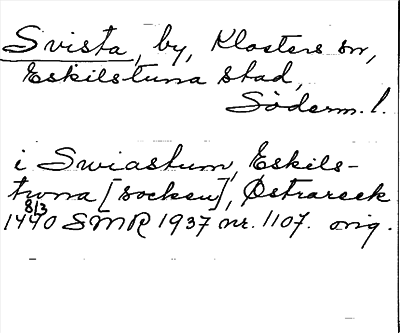 Svista, by, Klosters sn,
Eskilstuna stad,
Söderm. l.
i Swiastum, Eskils-
twna [socken], Østrareek
8/3
1440 SMR 1937 nr. 1107. orig.